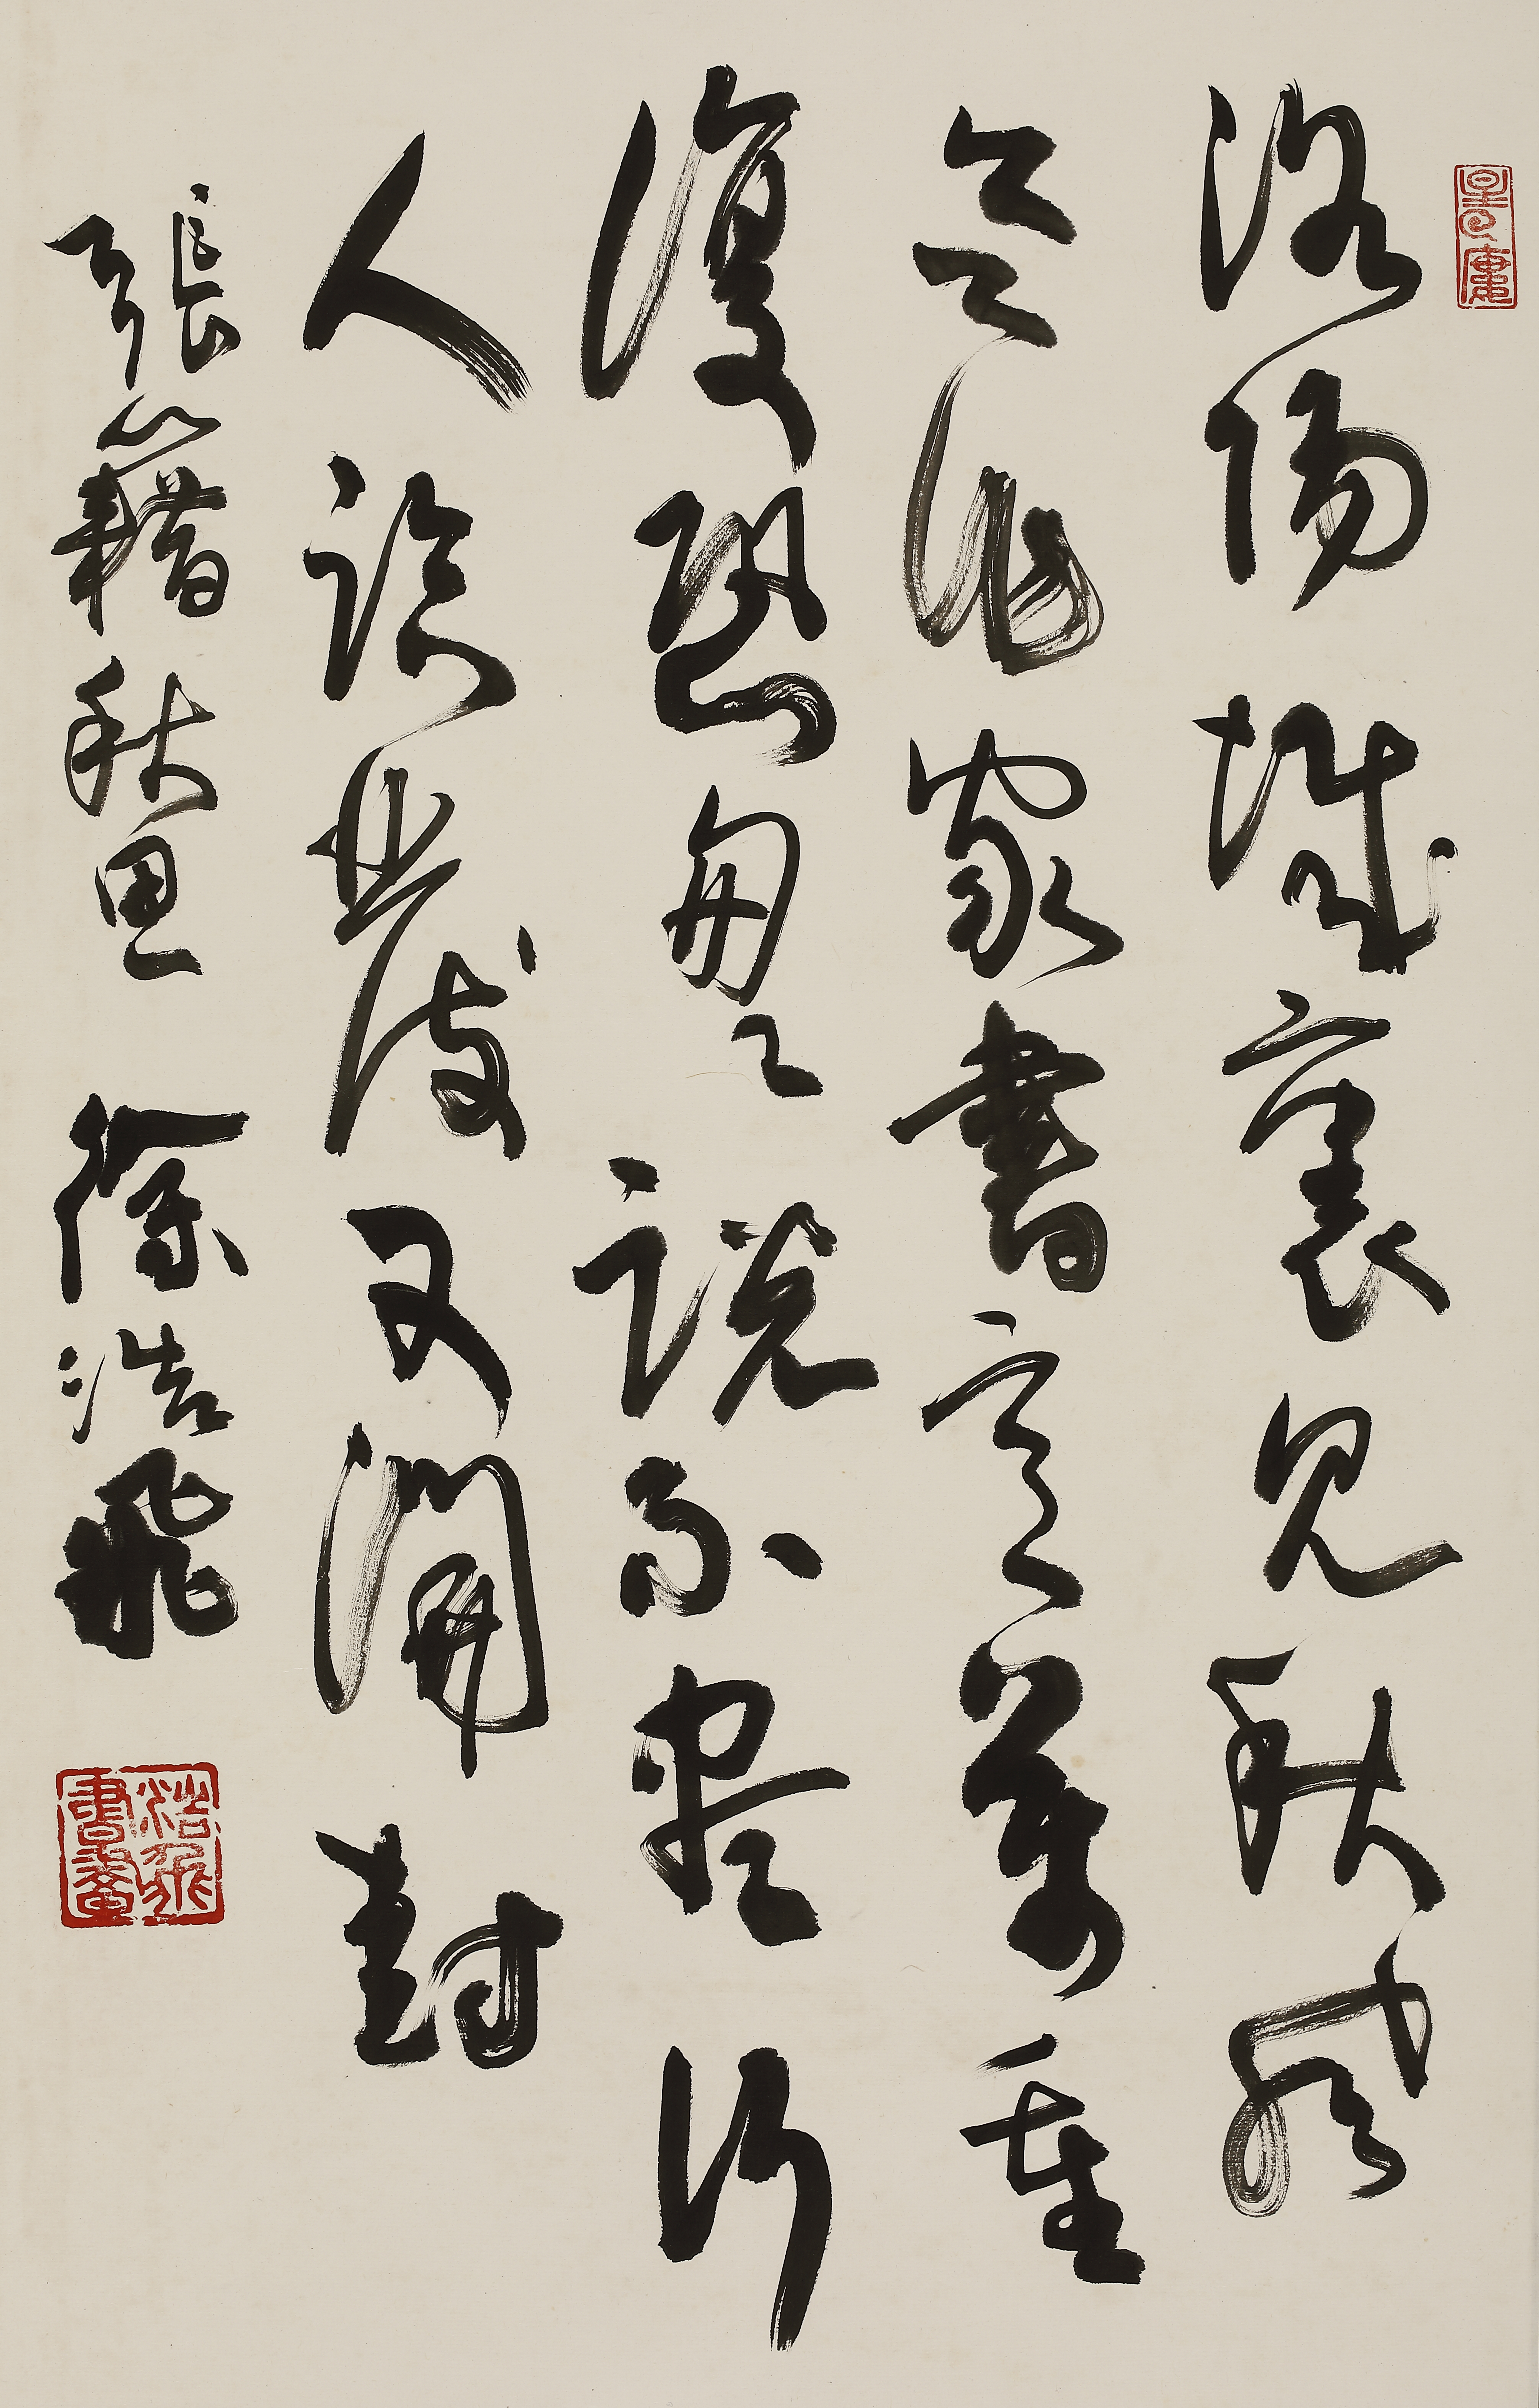 洛陽城裏見秋風
欲作家書意萬重
復恐匆匆說不盡行
人臨發又開封
張籍秋思 徐浩飛
浩飛書畫